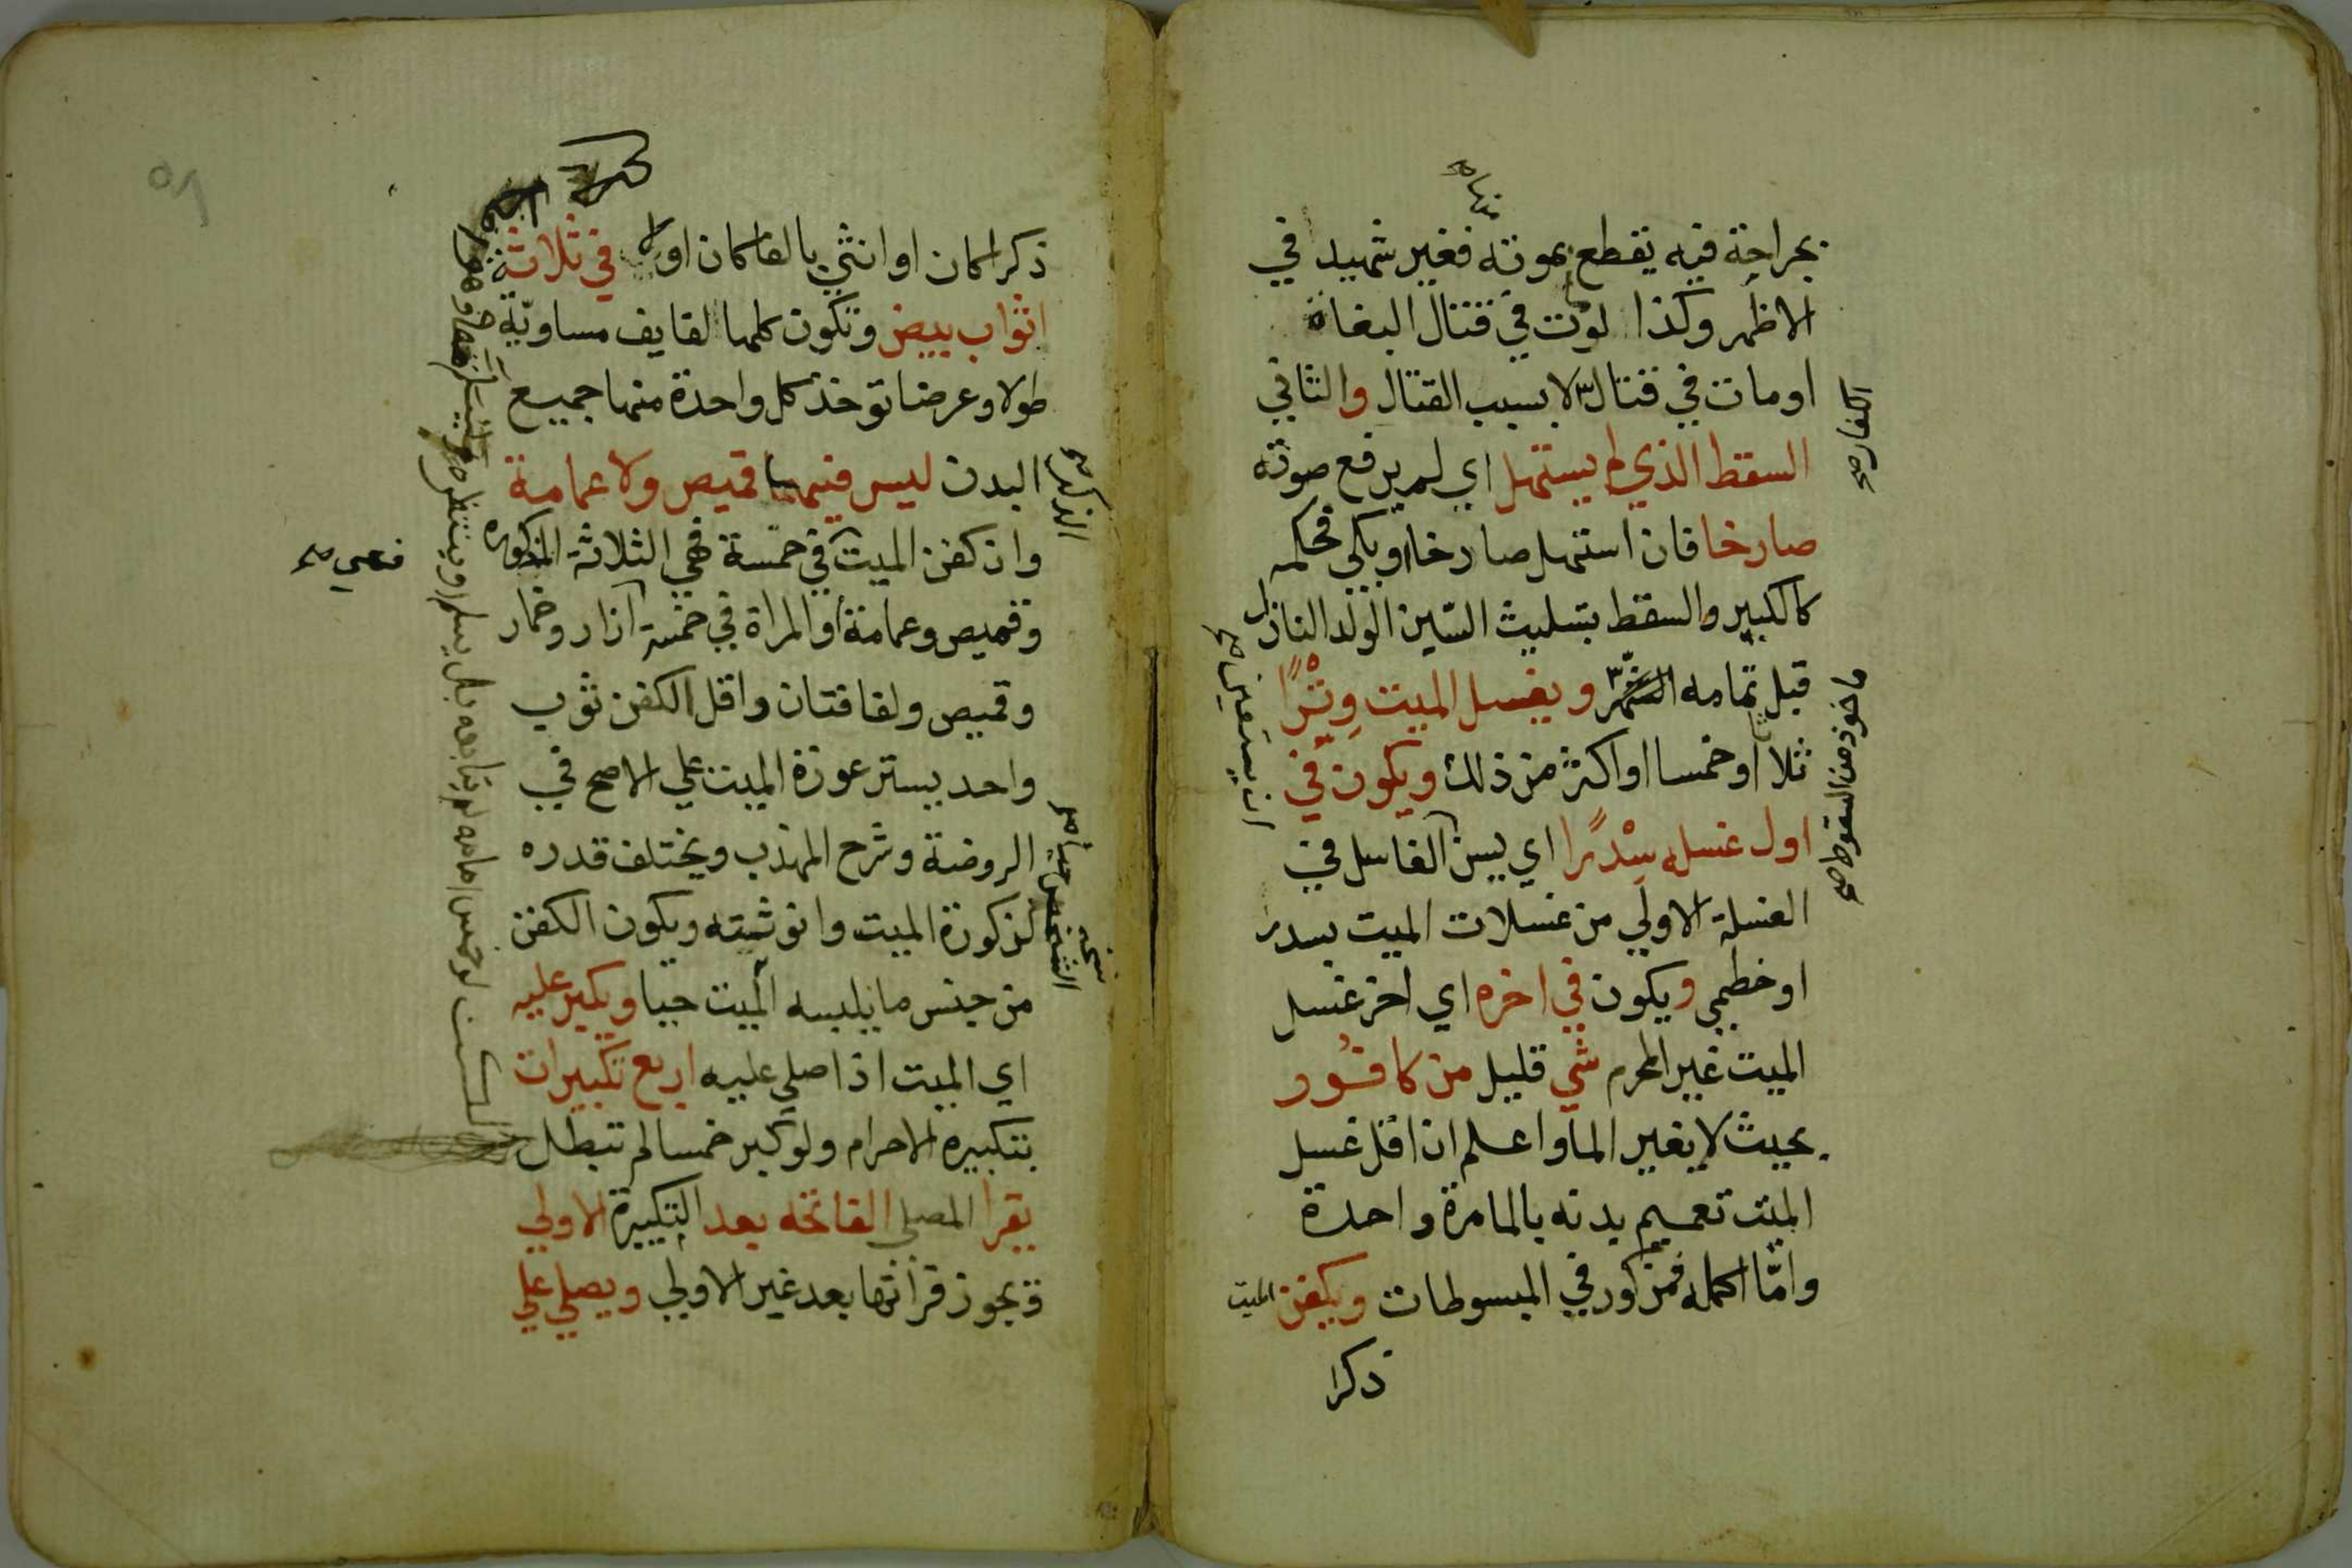 منها صح
بجراحة فيه يقطع بموته فغير شهيد في
الاظهر وكذا لو مات في قتال البغاة
او مات في قتال لا بسبب القتال والثاني
الكفار صح
السقط الذي لم يستهل اي لم يرفع صوته
صارخا فان استهل صارخا او بكى فحكمه
كالكبير والسقط بتثليث السين الولد النازل
قبل تمامه ويغسل الميت وِتْرًا
ماخوذ من السقوط صح
ثلاثا او خمسا او اكثر من ذلك ويكون في
اول غسله سِدْرًا اي يسن الغاسل في
ان يستعين صح
الغسلة الاولي من غسلات الميت بسدر
او خطمي ويكون في اخره اي اخر غسل
الميت غير المحرم شي قليل من كافُور
بحيث لا يغير الما واعلم ان اقل غسل
الميت تعميم بدنه بالما مرة واحدة
وامّا اكمله فمذكور في المبسوطات ويكفن الميت
ذكرا
ذكرا كان او انثي بالغا كان او لا في ثلاثة
اثواب بيض وتكون كلها لفايف مساويّة
طولا وعرضا توخذ كل واحدة منها جميع
البدن ليس فيها قميص ولا عمامة
الذكر صح
وان كفن الميت في خمسة فهي الثلاثة المذكوره
فهي صح
وقميص وعمامة او المراة في خمسة آزار وخمار
وقميص ولفافتان واقل الكفن ثوب
واحد يستر عورة الميت علي الاصح في
الروضة وشرح المهذب ويختلف قدره
بذكورة الميت وانوثته ويكون الكفن
من جنس ما يلبسه الميت حيا ويكبر عليه
نسخة الشخص حيا صح
اي الميت اذا صلي عليه اربع تكبيرات
بتكبيرة الاحرام ولو كبر خمسا لم تبطل
يقرا المصلي الفاتحه بعد التكبيرة الاولي
ويجوز قرأتها بعد غير الاولي ويصلي علي
لو خمس امامه لم يتابعه بل يسلم او ينتظره